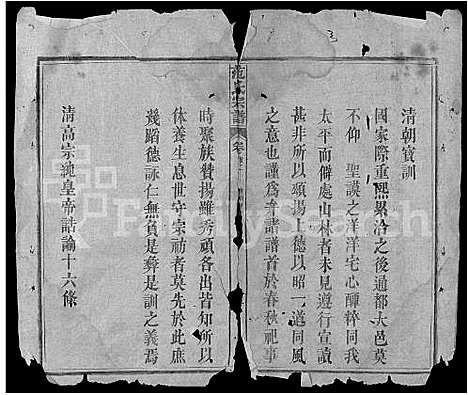 清朝寶訓
國家際重熙累洽之後通都大邑莫
不仰 聖謨之洋洋宅心醇粹同我
太平而僻處山林者未見遵行宣讀
甚非所以頌揚上德以昭一道同風
之意也謹為弁諸譜首於春秋祀事
范氏宗譜
卷
時聚族賛揚雖秀頑各出皆知所以
休養生息世守宗祊者莫先於此庶
幾蹈德詠仁無負是彜是訓之義焉
清高宗純皇帝誥諭十六條
FamilySearch